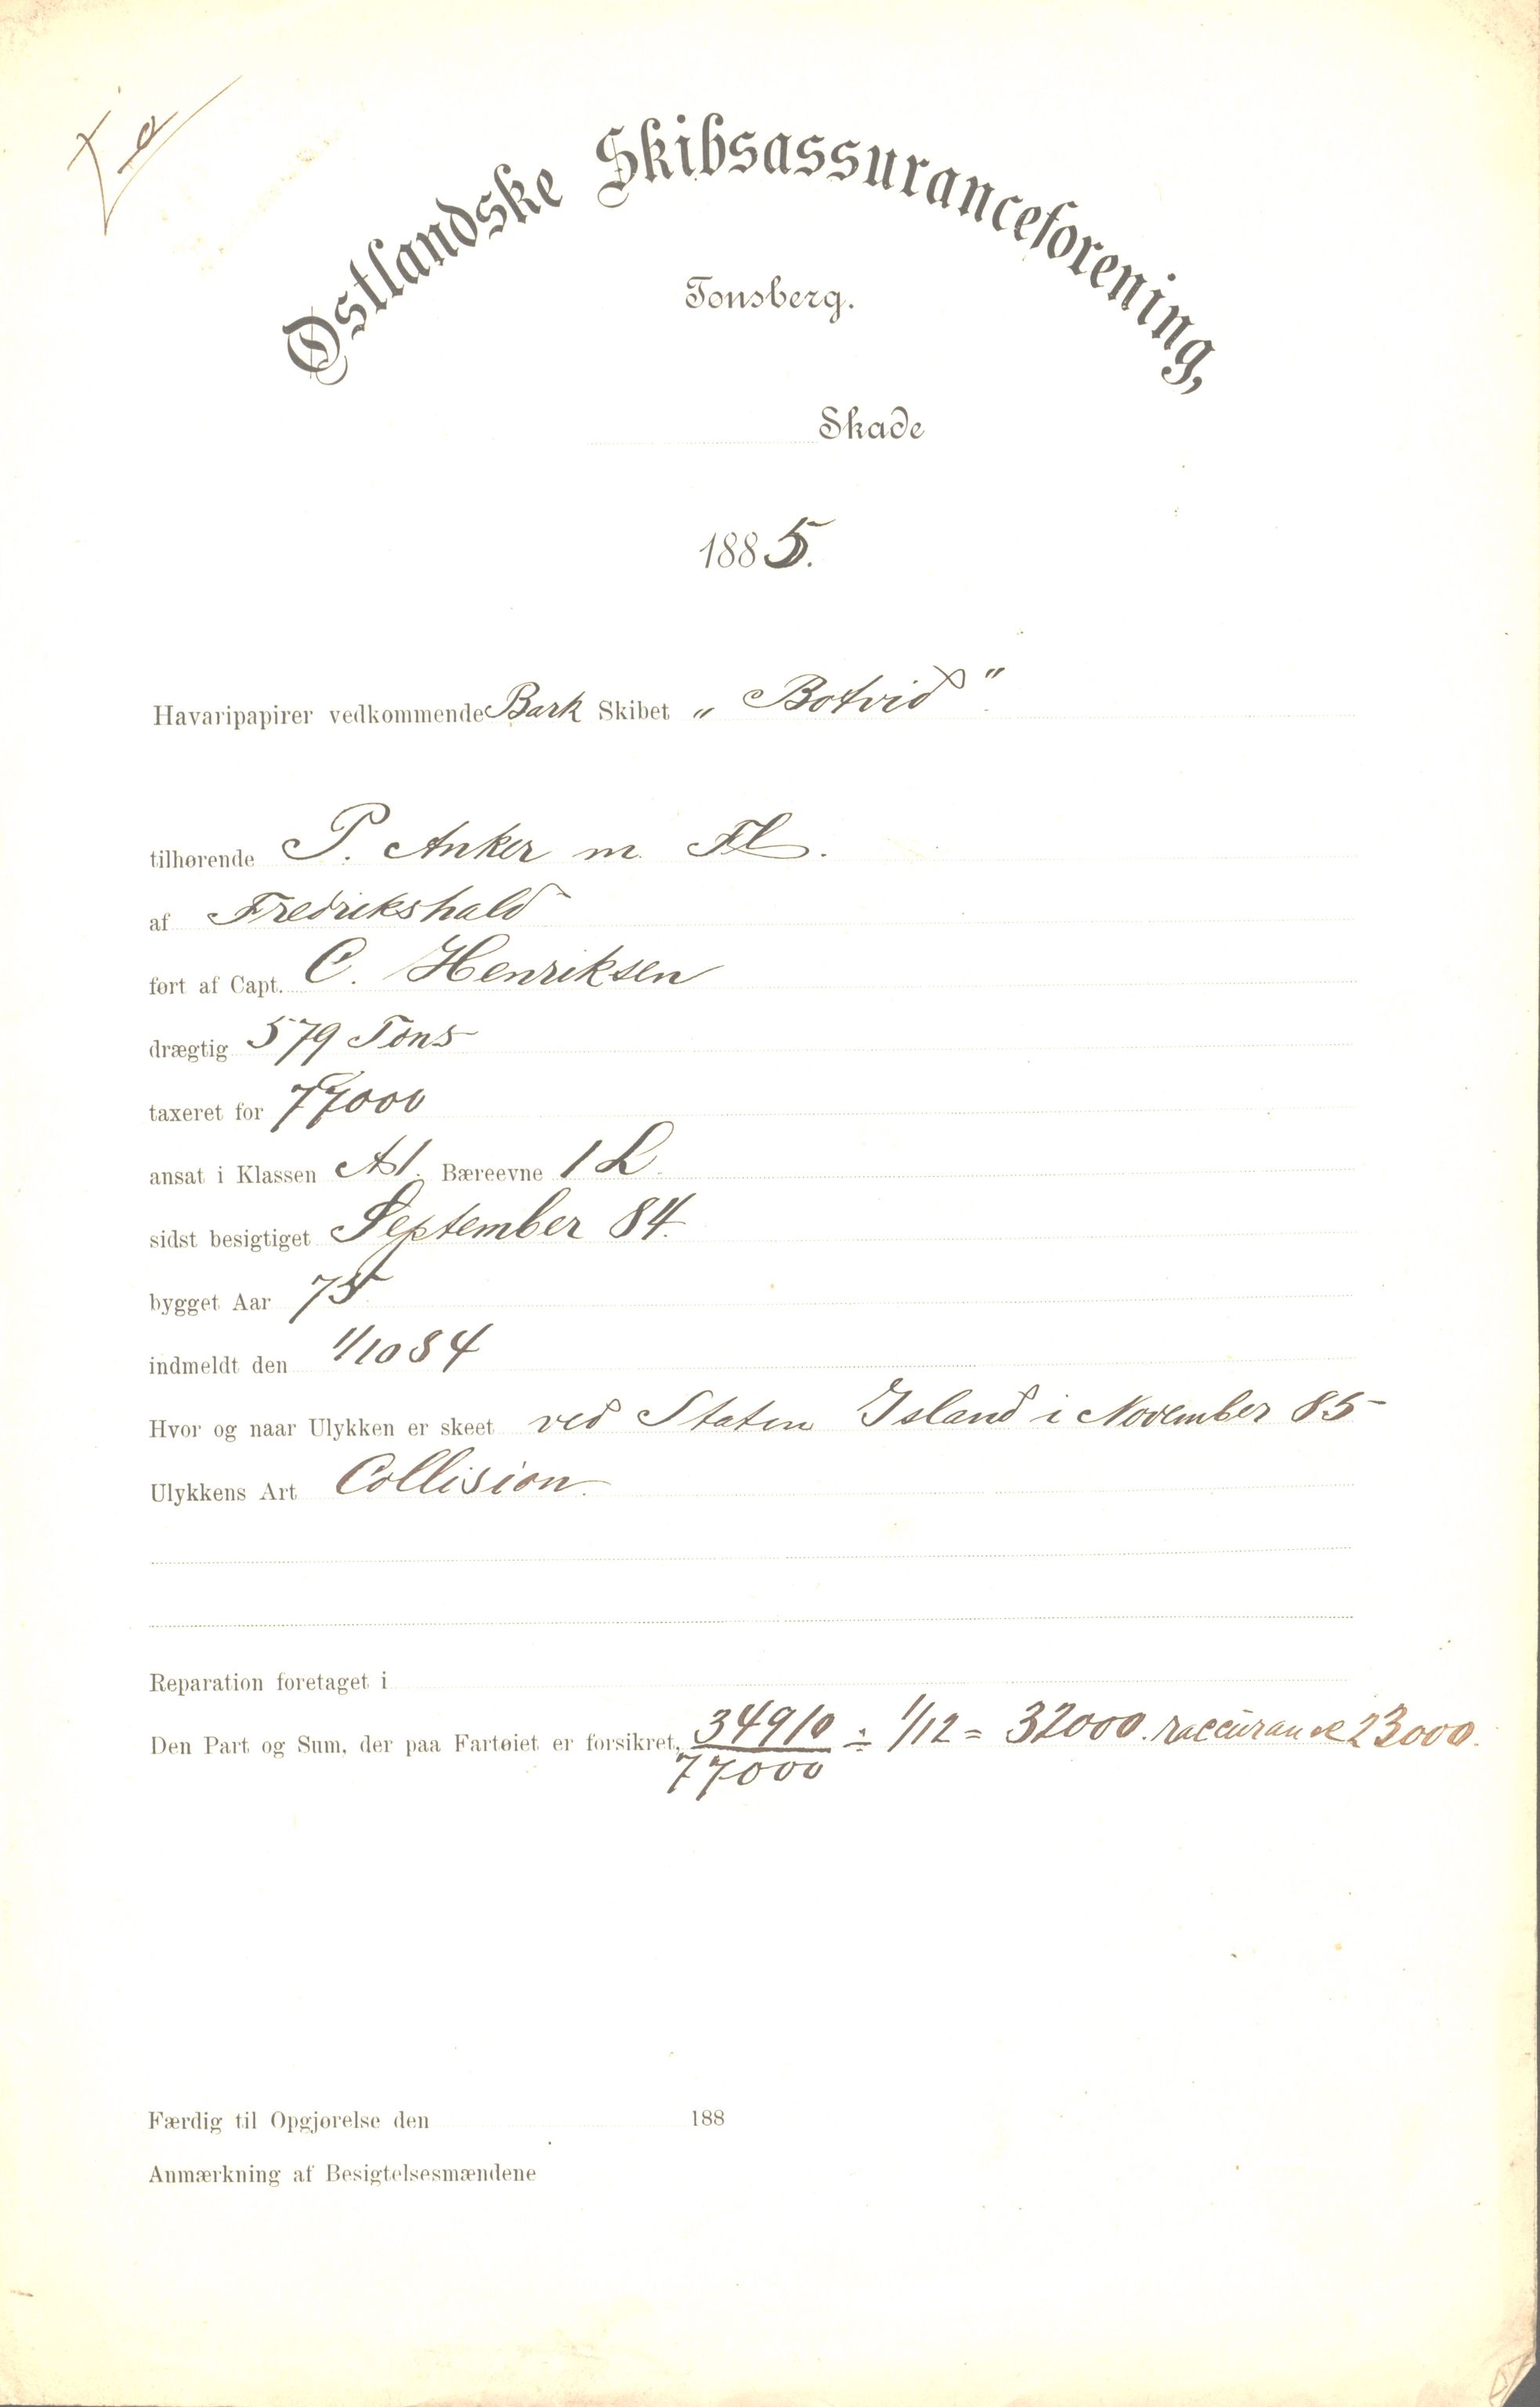 Østlandske Skibsassuranceforening,
Tønsberg.
Skade
1885.
Havaripapirer vedkommende Bark Skibet „ Botvid “
tilhørende P. Anker m. Fl.
af Fredrikshald
ført af Capt. C. Henriksen
drægtig 579 Tons
taxeret for 77000
ansat i Klassen A1. Bæreevne 1 L.
sidst besigtiget September 84.
bygget Aar 75
indmeldt den 1/10 84
Hvor og naar Ulykken er skeet ved Staten Island i November 85
Ulykkens Art Collision.
Reparation foretaget i
Den Part og Sum, der paa Fartøiet er forsikret, 34910/77000 ÷ 1/12 = 32000. raccurance 23000.
Færdig til Opgjørelse den 188
Anmærkning af Besigtelsesmændene